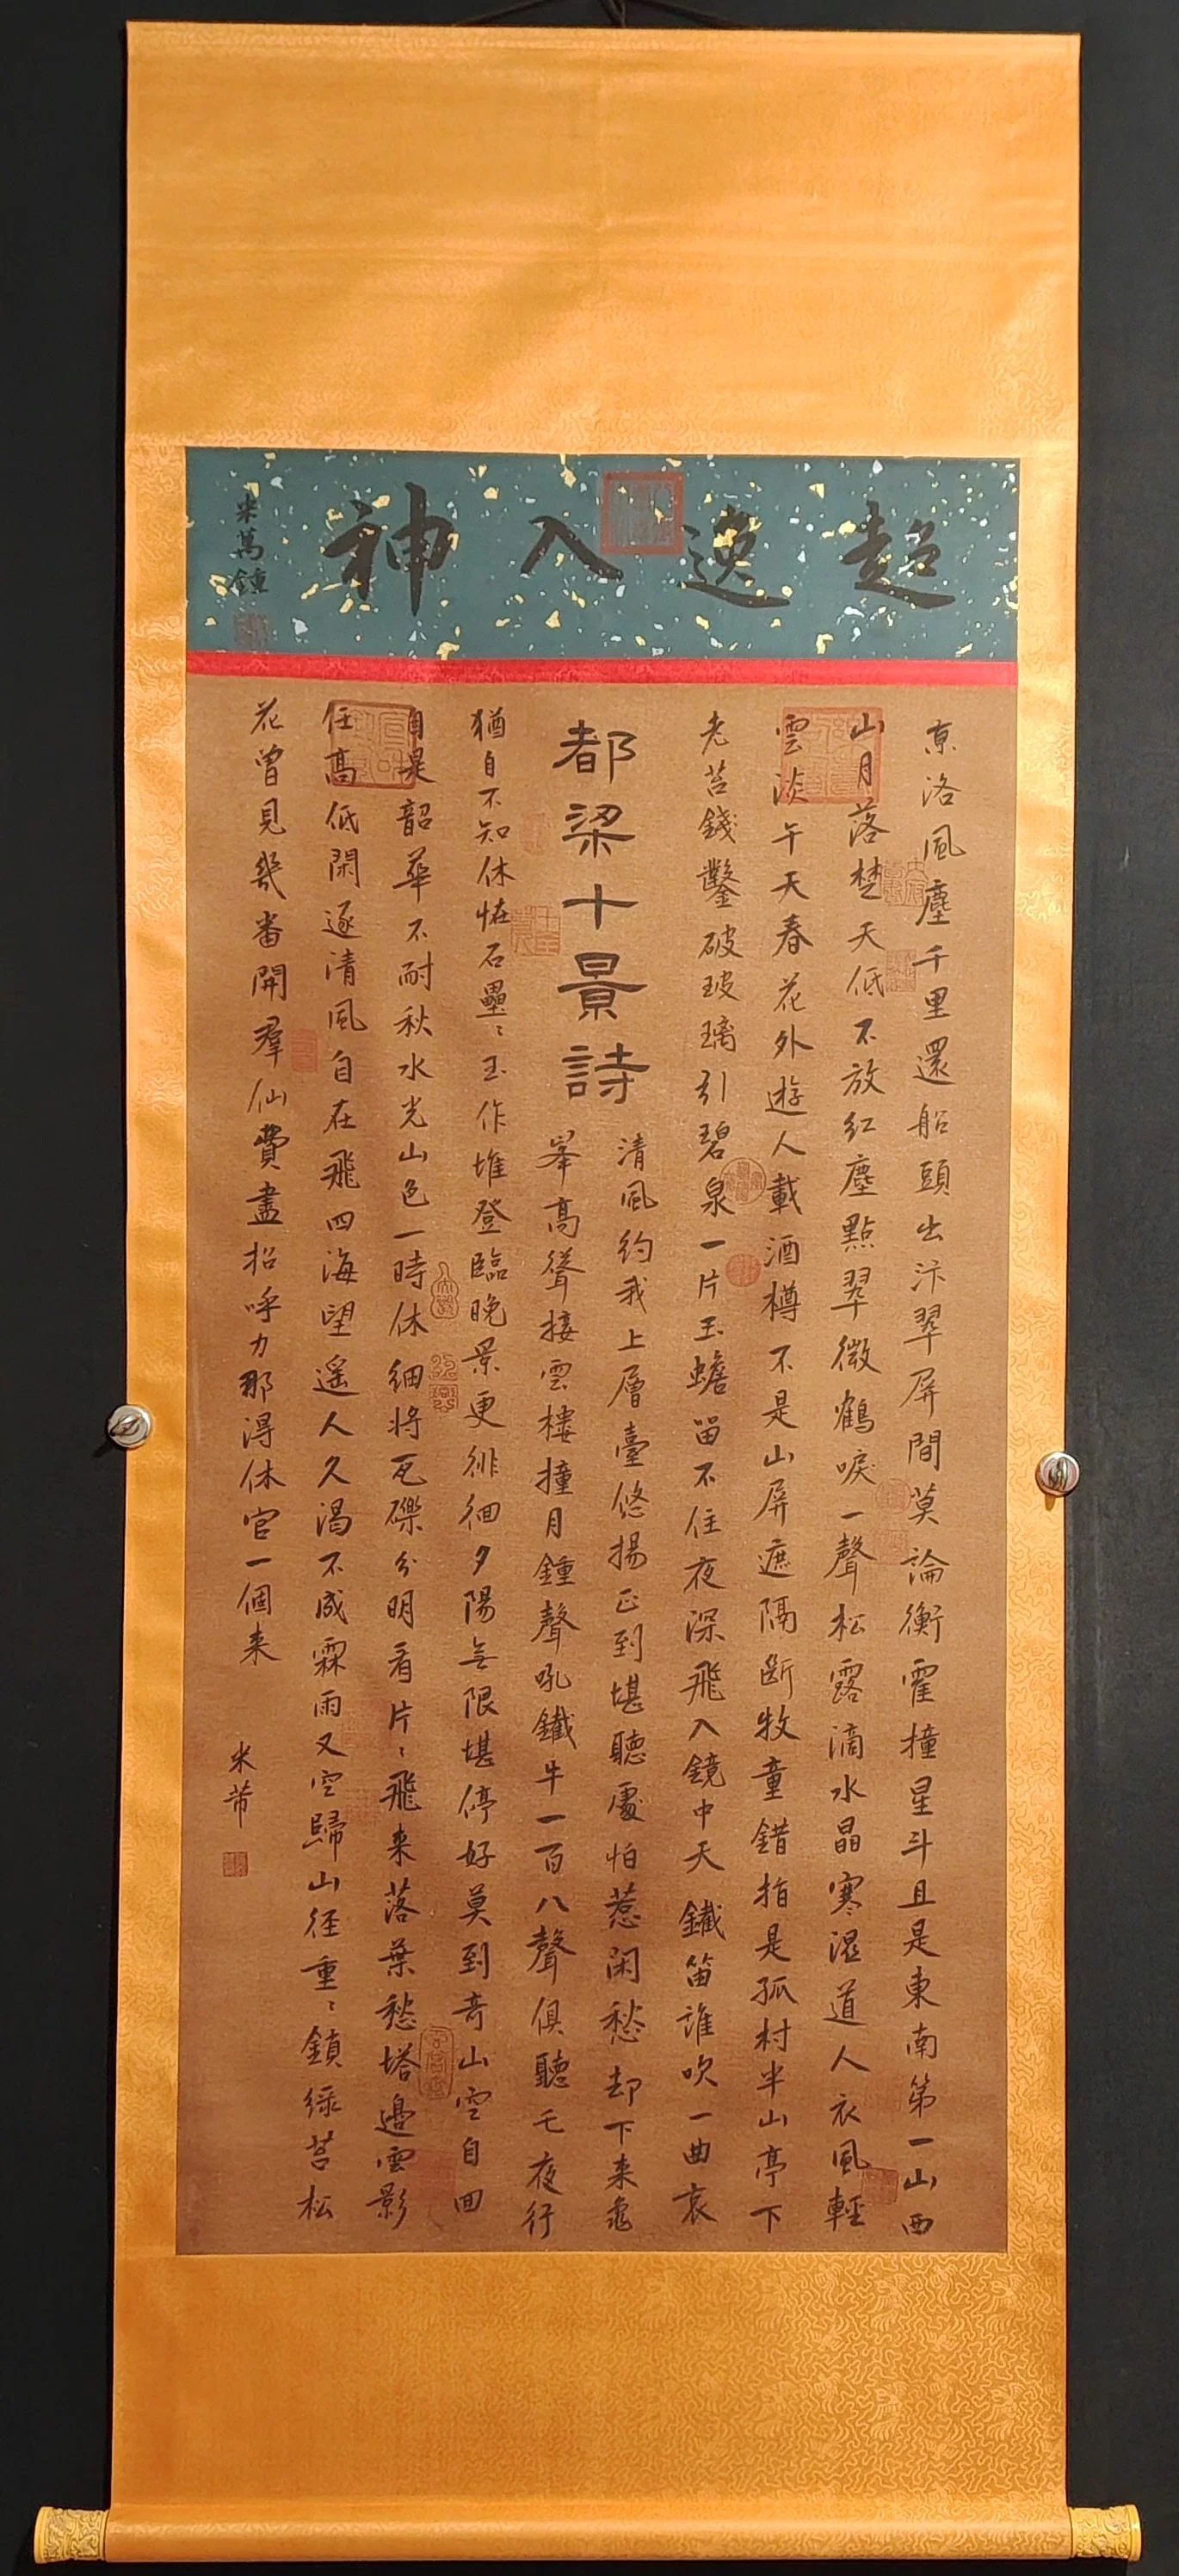 超逸入神
米萬鍾
京洛風塵千里還船頭出汴翠屏間莫論衡霍撞星斗且是東南第一山西
山月落楚天低不放紅塵點翠微鶴唳一聲松露滴水晶寒濕道人衣風輕
雲淡午天春花外遊人載酒樽不是山屏遮隔斷牧童錯指是孤村半山亭下
老苔錢鑿破玻璃引碧泉一片玉蟾留不住夜深飛入鏡中天鐵笛誰吹一曲哀
清風約我上層臺悠揚正到堪聽處怕惹閑愁却下来龜
都梁十景詩
峯高聳接雲樓撞月鐘聲吼鐵牛一百八聲俱聽乇夜行
猶自不知休怪石壘〻玉作堆登臨晚景更徘徊夕陽無限堪停好莫到奇山空自回
自是韶華不耐秋水光山色一時休細将瓦礫分明看片〻飛来落葉愁塔邉雲影
任高低閑逐清風自在飛四海望遥人久渴不成霖雨又空歸山径重〻鎖綠苔松
花曾見幾番開羣仙費盡招呼力那得休官一個来
米芾